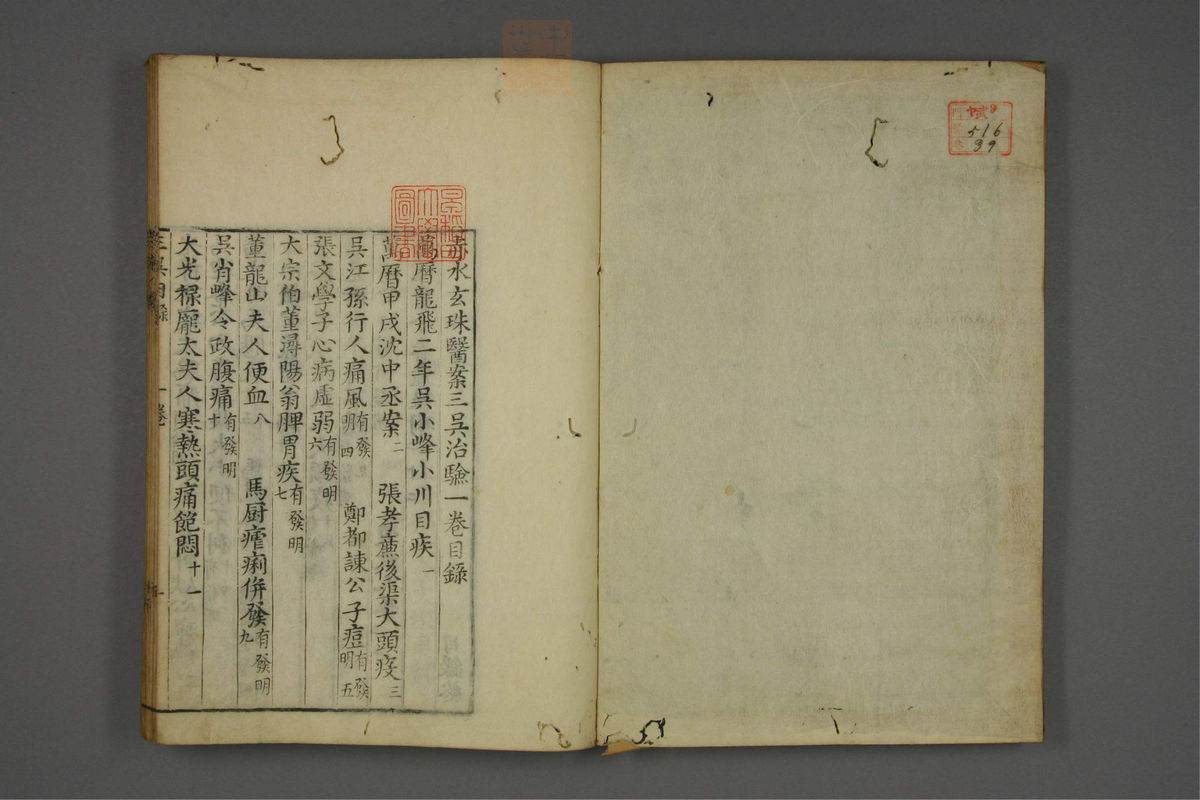 斌9
516
39
赤水玄珠醫案三吳治驗一卷目錄
萬曆龍飛二年吳小峰小川目疾一
萬曆甲戌沈中丞案二 張孝亷後渠大頭疫三
吳江孫行人痛風有發明四 鄭都諫公子痘有發明五
張文學子心病虛弱有發明六
大宗伯董潯陽翁脾胃疾有發明七
董龍山夫人便血八 馬厨瘧痢併發有發明九
吳肖峰令政腹痛有發明十
大光祿龐太夫人寒熱頭痛飽悶十一
一卷